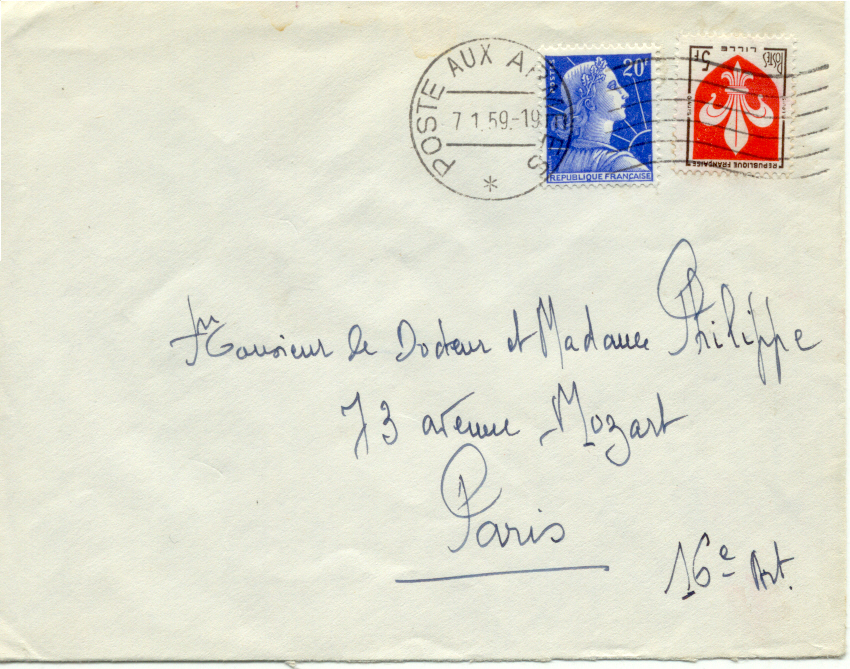 POSTE AUX AR ES
7 1.59.-19
*
POSTES
20F
REPUBLIQUE FRANÇAISE
LILLE
POSTES
5F
REPUBLIQUE FRANÇAISE
Monsieur le Docteur et Madame Philippe
73 avenue Mozart
Paris
16e Art.